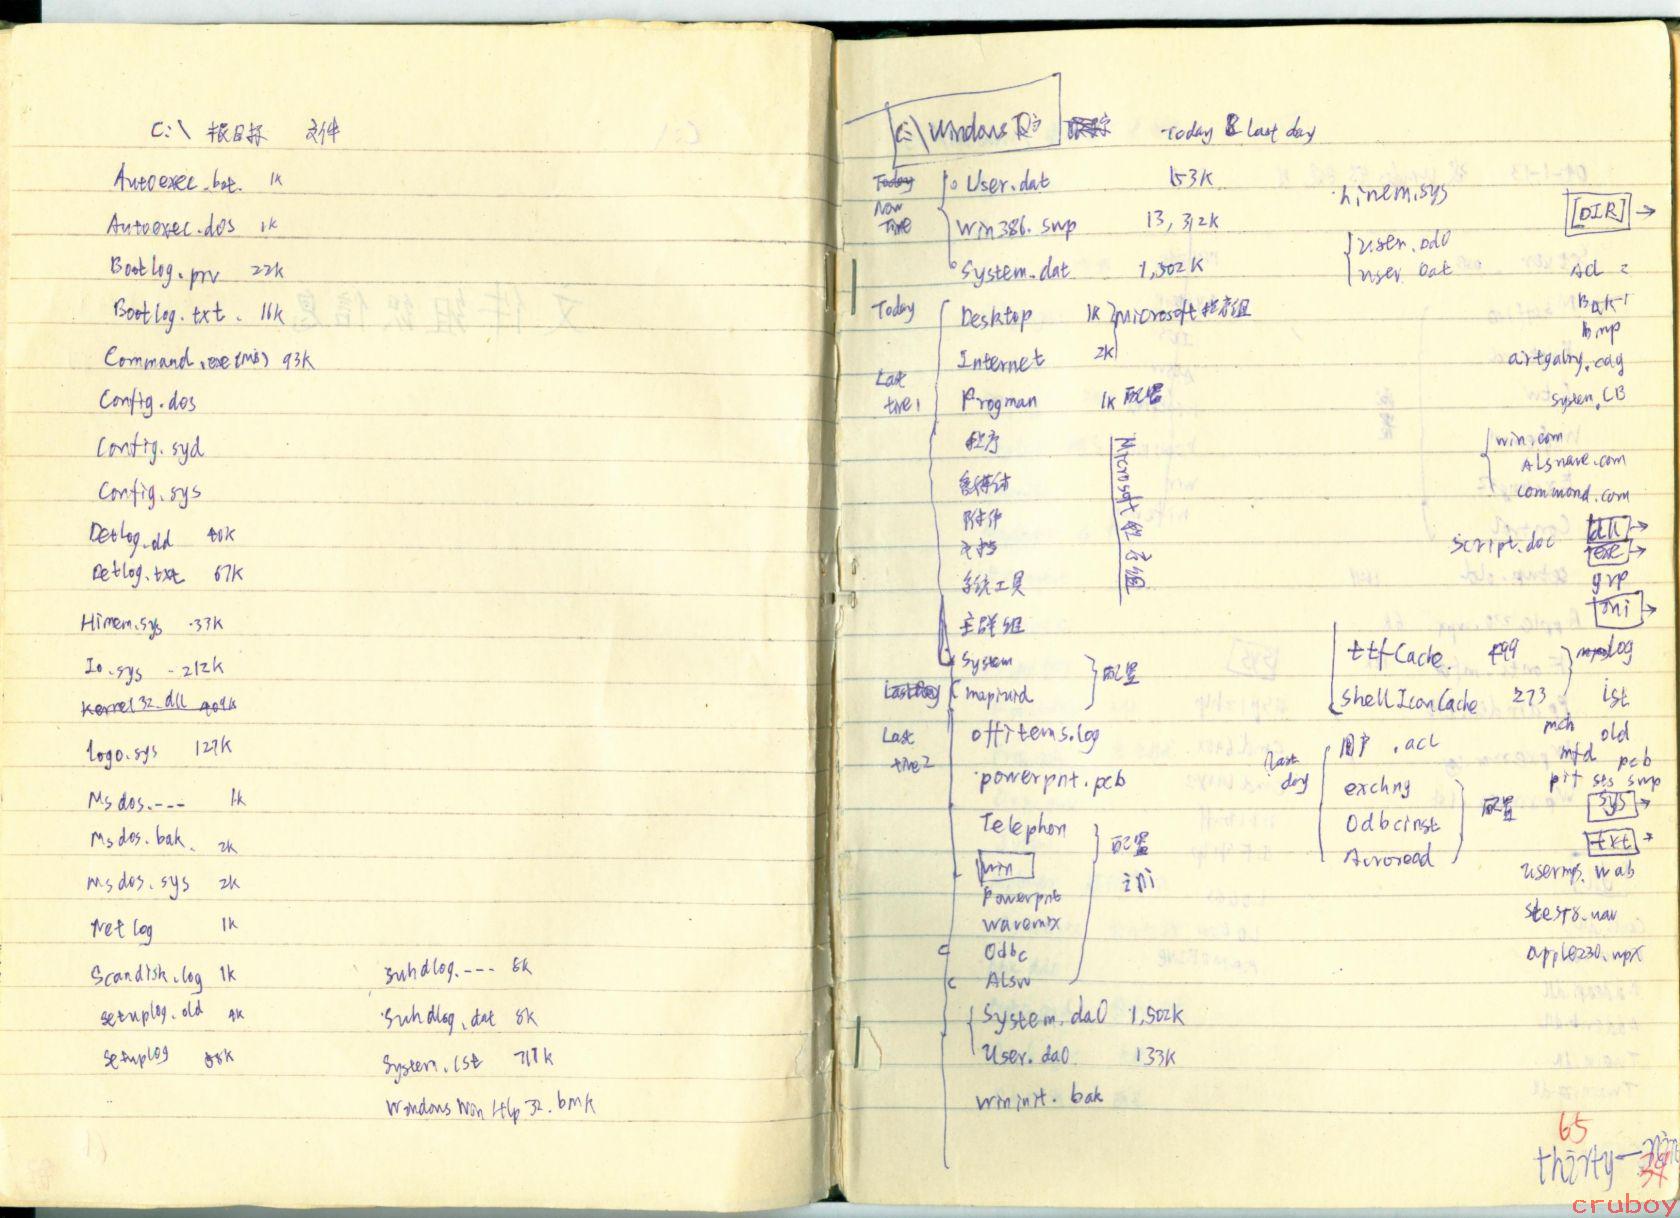 C:\ 根目标 文件
Autoexec.bat. 1K
Autoexec.dos 1K
Bootlog.prv 22K
Bootlog.txt. 16K
Command.exe(ms) 93K
Config.dos
Config.syd
Config.sys
Detlog.old 40K
Detlog.txt 67K
Himem.sys 33K
Io.sys 212K
Kernel32.dll
logo.sys 127K
Msdos.--- 1K
Msdos.bak. 2K
Msdos.sys 2K
Netlog 1K
Scandisk.log 1K
setuplog.old 4K
setuplog 88K
Suhdlog.--- 8K
Suhdlog.dat 8K
System.1st
Windows WinHlp32.bmk
C:\Windows 区 Today & last day
Today
Now
Time
User.dat 153K
Win386.swp 13,312K
System.dat 1,502K
Today
Last
time1
Desktop 1K
Microsoft程序组
Internet 2K
Progman 1K 配置
程序
附件
文档
系统工具
主群组
Microsoft程序组
System
mapiuid
配置
Last
time2
offitems.log
powerpnt.pcb
Telephon
win
Powerpnt
wavemix
Odbc
Alsw
配置
System.da0 1,502K
User.da0 133K
wininit.bak
himem.sys
user.da0
ttfCache. 499
ShellIconCache 273
last
day
用户 .acl
exchng
Odbcinst
Acroread
配置
[DIR] →
Acl
BAK-1
bmp
artgalry.cag
system.CB
win.com
command.com
script.doc
dll →
exe →
grp
ini →
log
ist
mch old
mfd pcb
pit sts swp
sys →
txt →
usermps.wab
apple230.mpx
65
thirty-nine
39
cruboy